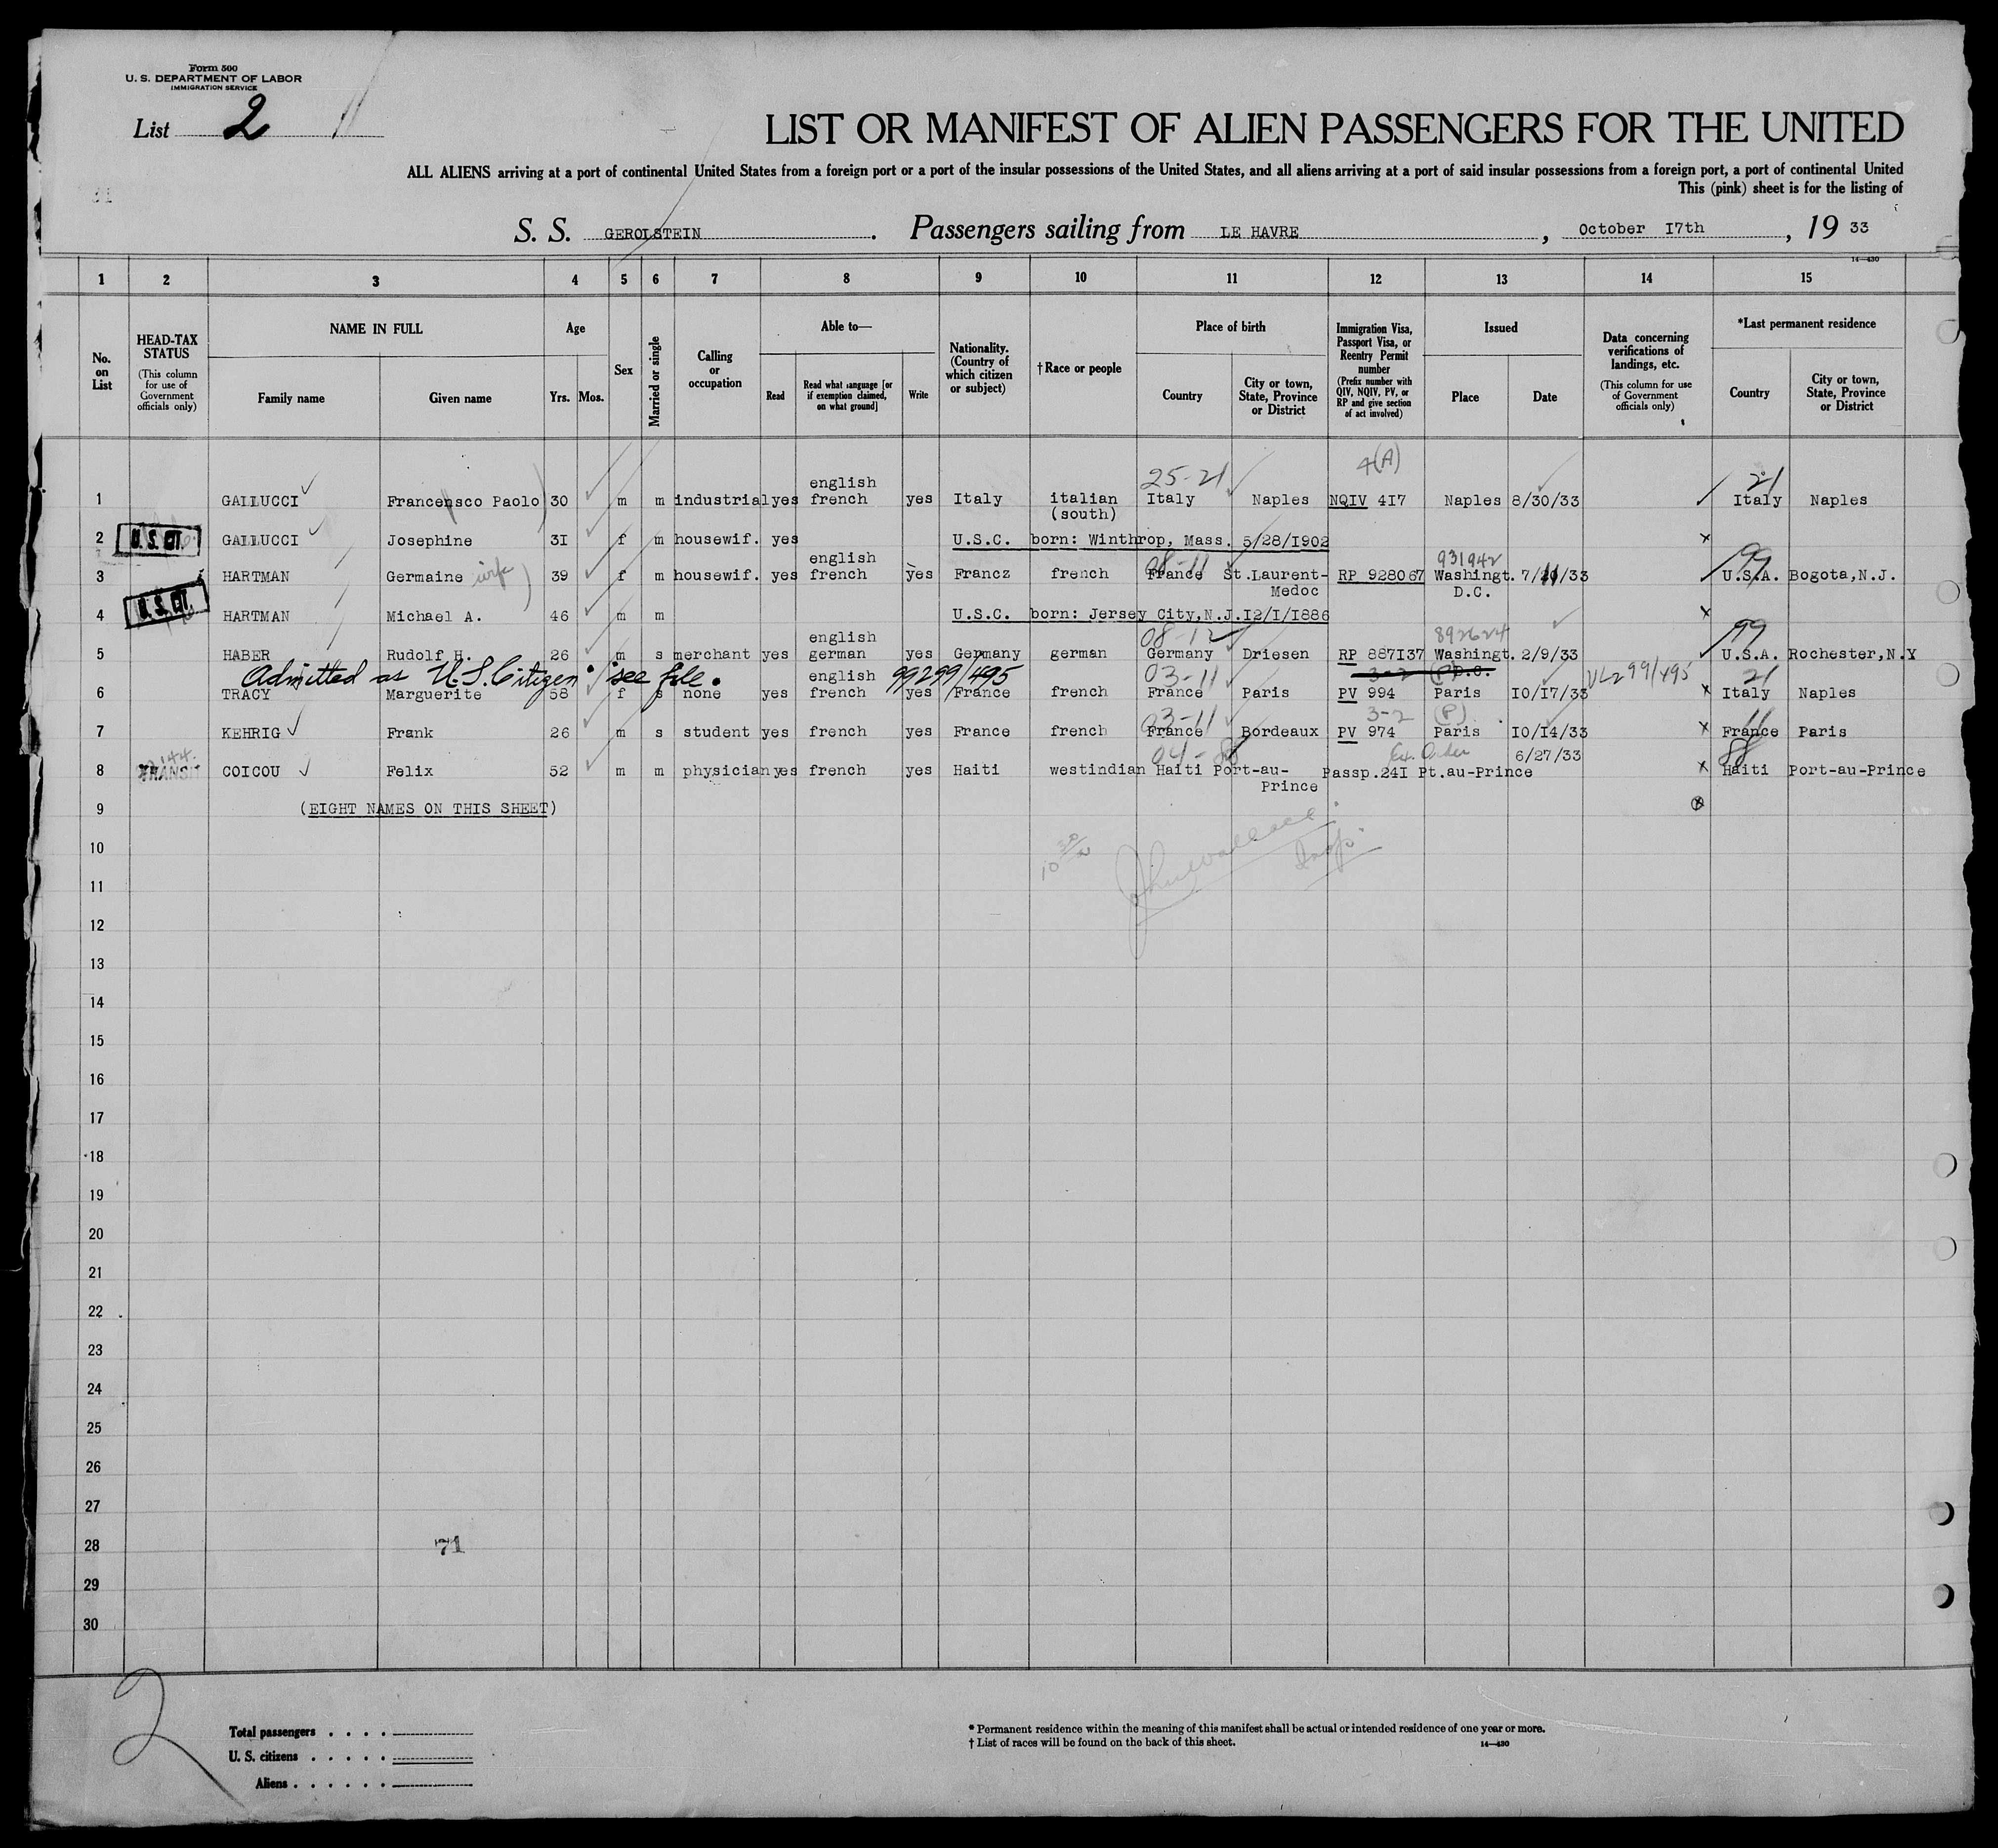 Form 500
U. S. DEPARTMENT OF LABOR
IMMIGRATION SERVICE
List 2
LIST OR MANIFEST OF ALIEN PASSENGERS FOR THE UNITED
ALL ALIENS arriving at a port of continental United States from a foreign port or a port of the insular possessions of the United States, and all aliens arriving at a port of said insular possessions from a foreign port, a port of continental United
This (pink) sheet is for the listing of
S. S. GEROLSTEIN. Passengers sailing from LE HAVRE, October I7th, 19 33
14-430
1 2 3 4 5 6 7 8 9 10 11 12 13 14 15
No. on List
HEAD-TAX STATUS (This column for use of Government officials only)
NAME IN FULL
Family name Given name
Age
Yrs. Mos.
Sex
Married or single
Calling or occupation
Able to—
Read
Read what language [or if exemption claimed, on what ground]
Write
Nationality. (Country of which citizen or subject)
†Race or people
Place of birth
Country
City or town, State, Province or District
Immigration Visa, Passport Visa, or Reentry Permit number (Prefix number with QIV, NQIV, PV, or RP and give section of act involved)
Issued
Place Date
Data concerning verifications of landings, etc. (This column for use of Government officials only)
*Last permanent residence
Country
City or town, State, Province or District
4(A)
english 25-21 21
1 GALLUCCI Francensco Paolo 30 m m industrial yes french yes Italy italian Italy Naples NQIV 4I7 Naples 8/30/33 Italy Naples
(south)
2 U.S. CIT. GALLUCCI Josephine 3I f m housewif. yes U.S.C. born: Winthrop, Mass. 5/28/1902 x
english 08-11 931942 99
3 HARTMAN Germaine wife 39 f m housewif. yes french yes Francz french France St.Laurent- RP 928067 Washingt. 7/11/33 U.S.A. Bogota,N.J.
Medoc D.C.
4 U.S. CIT. HARTMAN Michael A. 46 m m U.S.C. born: Jersey City,N.J.I2/I/I886 x
english 08-12 892624 99
5 HABER Rudolf H. 26 m s merchant yes german yes Germany german Germany Driesen RP 887I37 Washingt. 2/9/33 U.S.A. Rochester,N.Y
Admitted as U.S. Citizen see file. english 99299/495 03-11 3-2 (P) D.C. VL299/495 21
6 TRACY Marguerite 58 f s none yes french yes France french France Paris PV 994 Paris I0/I7/33 x Italy Naples
03-11 3-2 (P) 11
7 KEHRIG Frank 26 m s student yes french yes France french France Bordeaux PV 974 Paris I0/I4/33 x France Paris
144. 04-88 Ex. Order 6/27/33 88
8 TRANSIT COICOU Felix 52 m m physician yes french yes Haiti westindian Haiti Port-au- Passp.24I Pt.au-Prince x Haiti Port-au-Prince
Prince
9 (EIGHT NAMES ON THIS SHEET) x
10
11
12
13
14
15
16
17
18
19
20
21
22
23
24
25
26
27
28 71
29
30
2
Total passengers
U. S. citizens
Aliens
* Permanent residence within the meaning of this manifest shall be actual or intended residence of one year or more.
† List of races will be found on the back of this sheet.
14-430